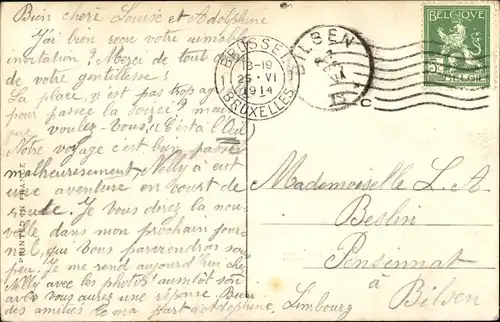 Bien chere Louise et Adolphine
J'ai bien reçu votre aimable
invitation? Merci de tout
de votre gentillesse!
La place, n'est pas trop
pour passer la
voulez-vous,
Notre voyage c'est bien passé
malheureusement, Nelly a eut
une aventure en cours de
route. Je vous direz la nou-
velle dans mon prochain jour-
nal, qui vous
peu. Je me rend aujourd'hui chez
Nelly avec les photos aussitôt
vous aurez une réponse.
des amitiés de ma part a Adolphine.
PRINTED IN FRANCE
BRUSSEL
18-19
25·VI
1914
BRUXELLES
1 1
BILSEN
BELGIQUE
5
BELGIË
Mademoiselle L. A.
Beslin
Pensionnat
à Bilsen
Limbourg